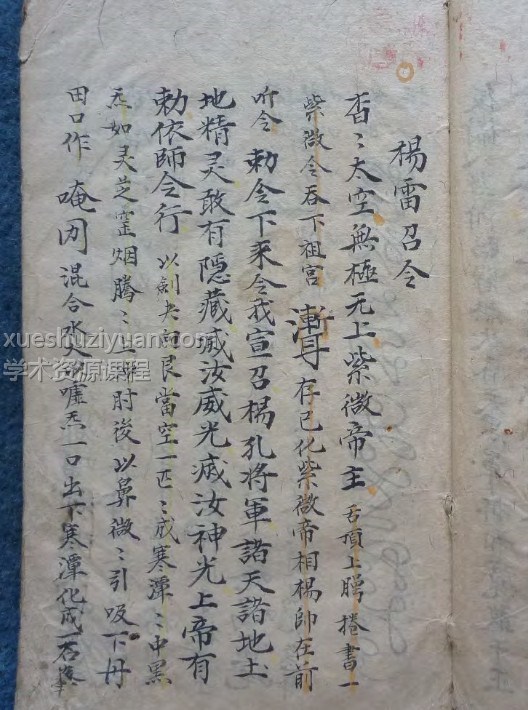 楊雷召令
杳〻太空無極无上紫微帝主 舌頂上腭捲書一
紫微令吞下祖宮 存已化紫微帝相楊帥在前
听令 勅令下來令我宣召楊孔將軍諸天諸地土
地精灵敢有隐藏滅汝威光滅汝神光上帝有
勅依師令行 以劍夬向艮當空一匹〻成寒潭〻中黑
炁如灵芝窑烟騰〻上 肘後以鼻微〻引吸下丹
田口作 唵囙 混合水火 嘘炁一口出下寒潭化成一石
xueshuziyuan.com
学术资源课程